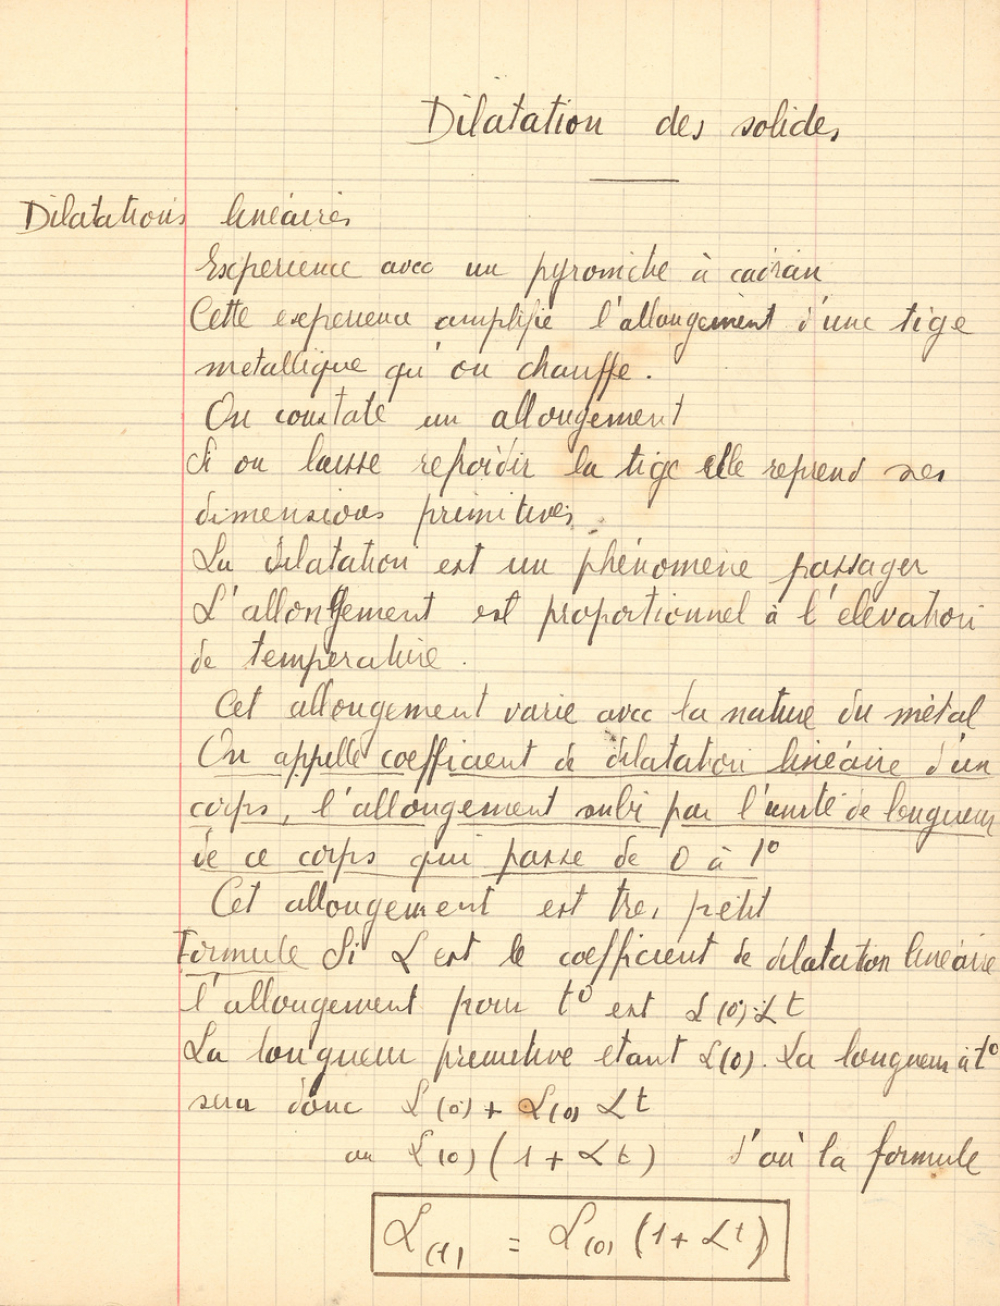 Dilatation des solides
Dilatations linéaires
Experience avec un pyromètre à cadran
Cette experience amplifie l'allongement d'une tige
metallique qu'on chauffe.
On constate un allongement
Si on laisse refroidir la tige elle reprend ses
dimensions primitives
La dilatation est un phénomène passager
L'allongement est proportionnel à l'élevation
de temperature.
Cet allongement varie avec la nature du métal
On appelle coefficient de dilatation linéaire d'un
corps, l'allongement subi par l'unité de longueur
de ce corps qui passe de 0 à 1°
Cet allongement est très petit
Formule Si α est le coefficient de dilatation linéaire
l'allongement pour t° est L(0).αt
La longueur primitive etant L(0). La longueur à t°
sera donc L(0) + L(0) αt
ou L(0) (1 + αt) d'où la formule
L(t) = L(0) (1 + αt)